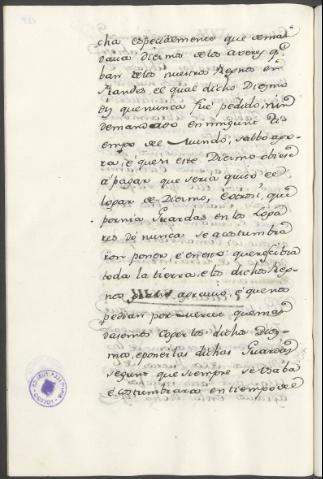 cha especialmente que deman
dava Diezmo de los averes q.e
ban de los nuestros Regnos en
Flandes el qual dicho Diezmo
es que nunca fue pedido, nin
demandado en ningunt ti
empo del Mundo, salbo ago
ra, è quien este Diezmo obiese
à pagar que seria quito el
logar de Diezmo, è otrosi, que
ponia Guardas en los Loga
res dó nunca se acostumbra
ron poner, è en esto que recibia
toda la tierra, e los dichos Reg
nos agravio, è que nos
pedian por merced que man
dasemos coger los dichos Diez
mos, è poner las dichas Guardas
segunt que siempre se usaba
è costumbrara en tiempo del